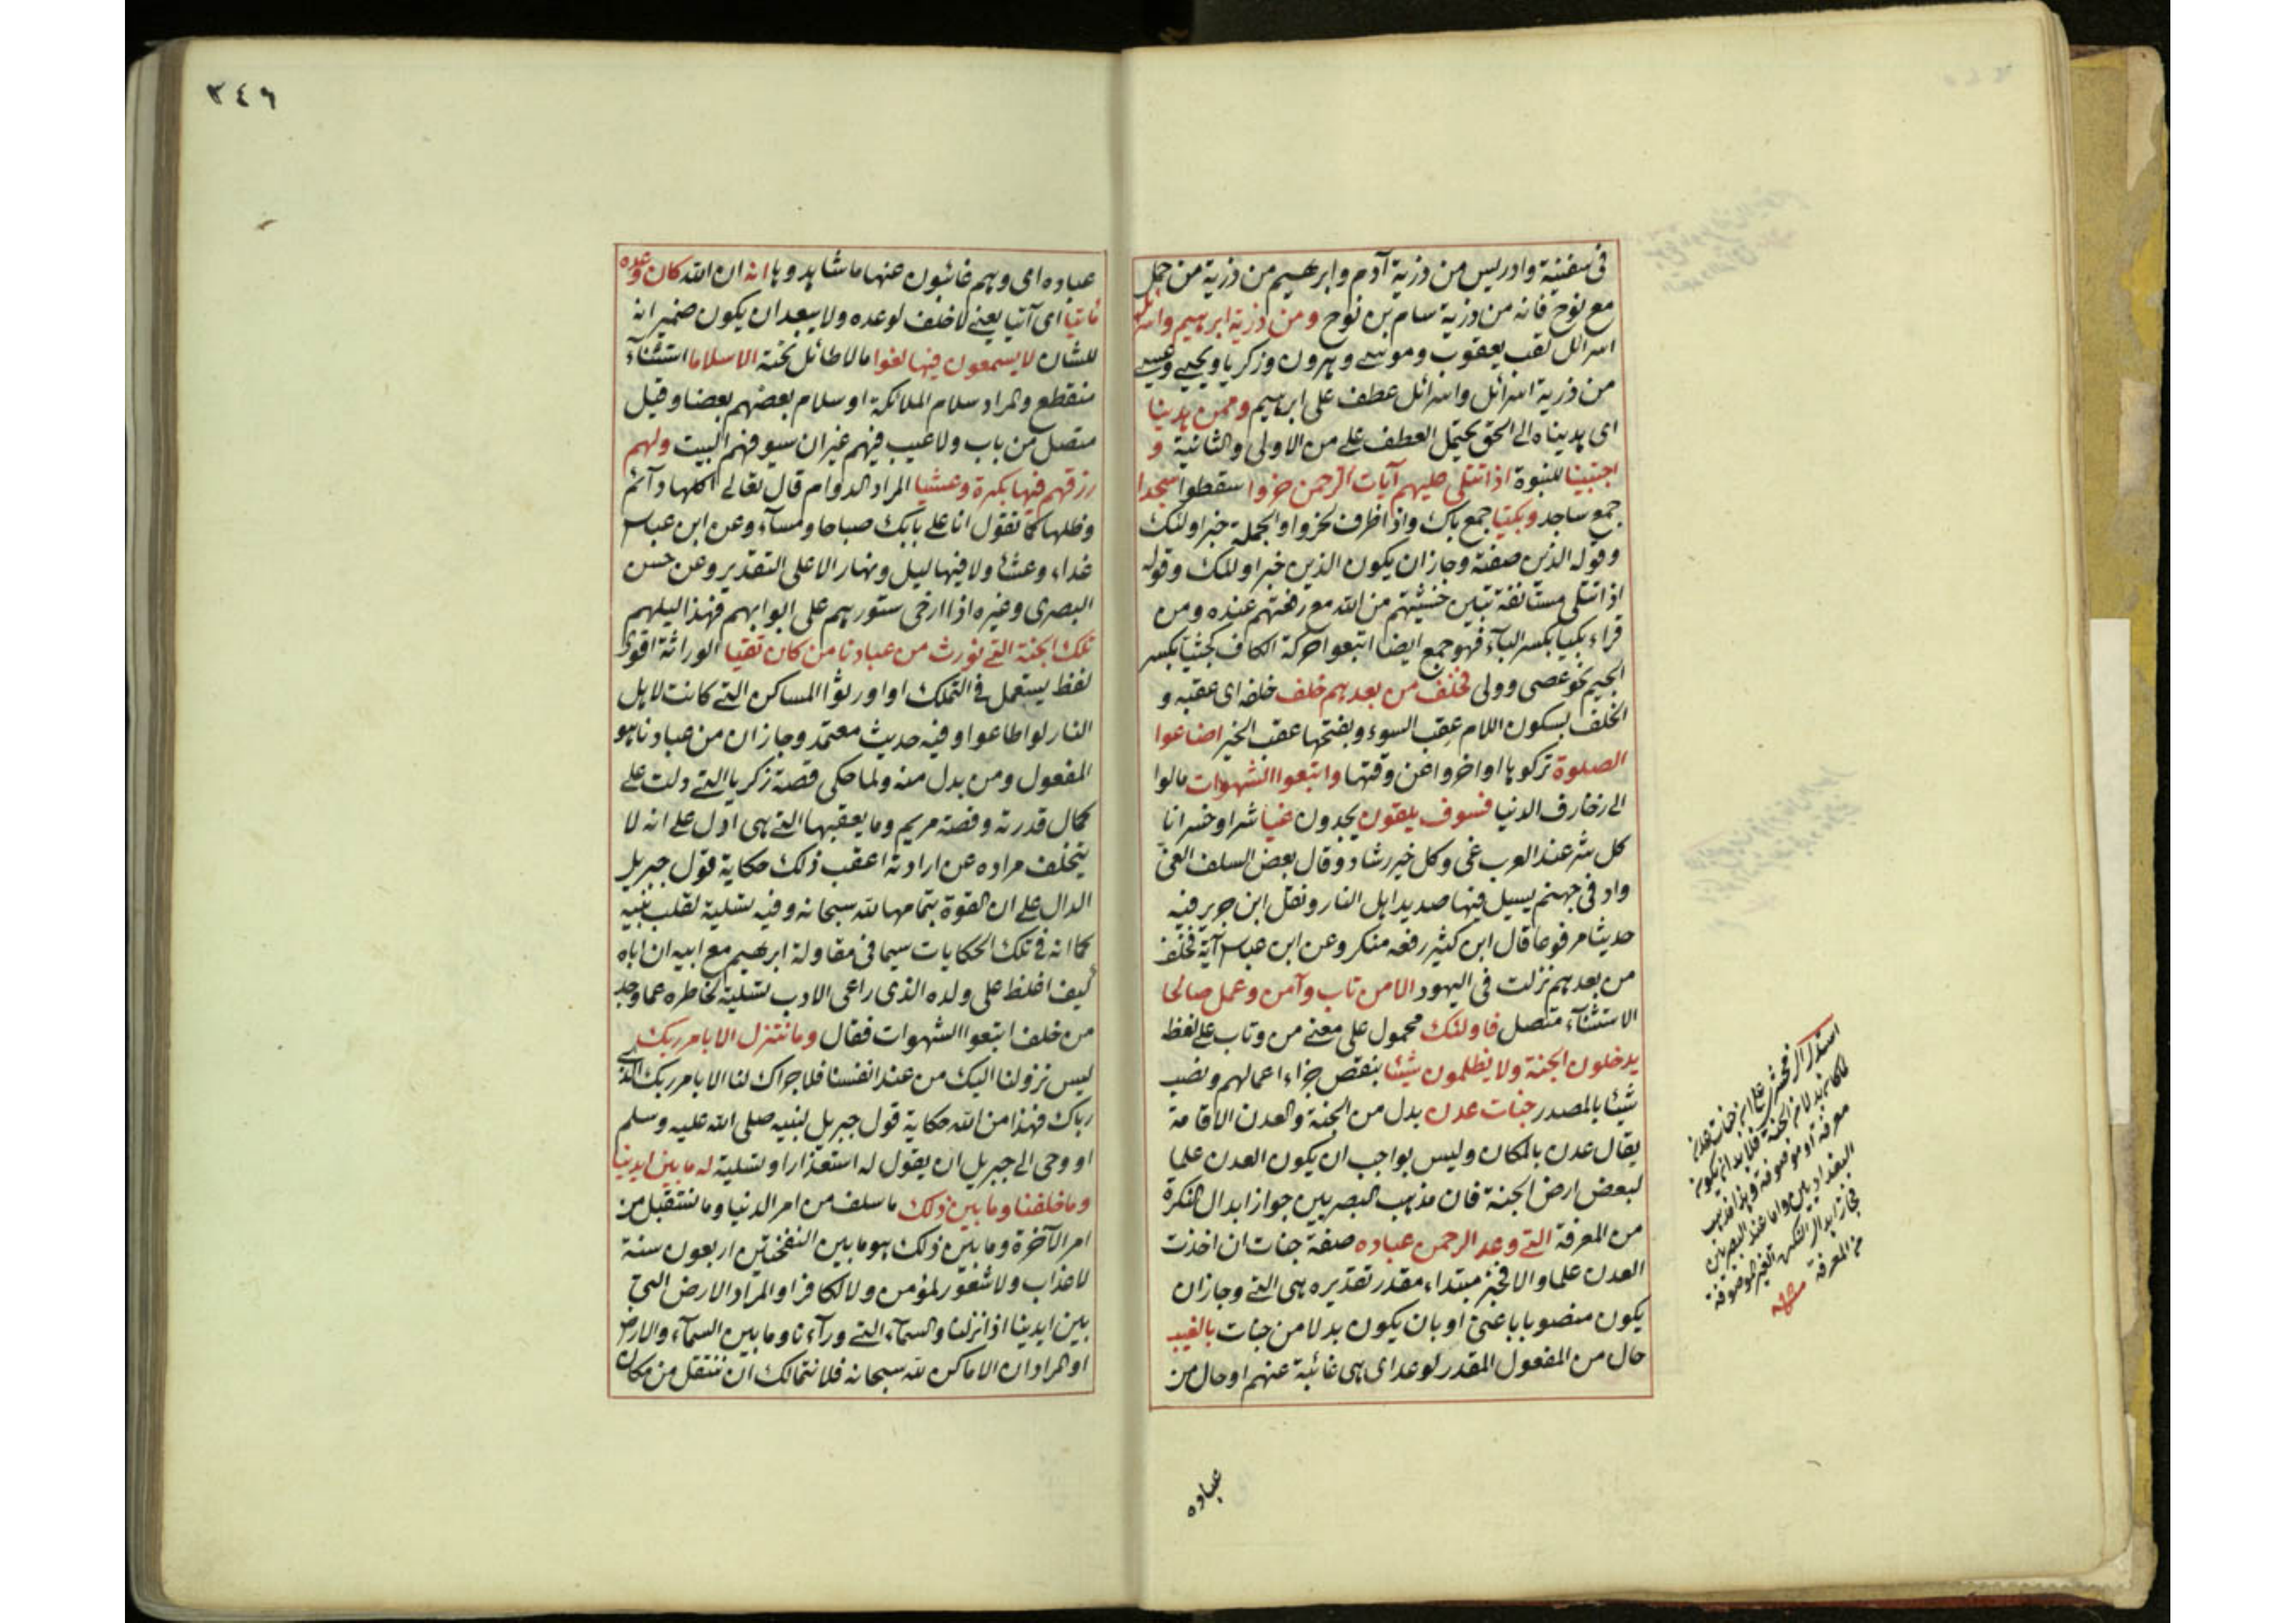 فى سفينة وادريس من ذرية آدم وابرهيم من ذرية من حمل
مع نوح فانه من ذرية سام بن نوح ومن ذرية ابرهيم واسرائل
اسرائل لقب يعقوب وموسى وهرون وزكريا ويحيى وعيسى
من ذرية اسرائل واسرائل عطف على ابرهيم وممن هدينا
اى هديناه الى الحق يحتمل العطف على من الاولى والثانية و
اجتبينا للنبوة اذا تتلى عليهم آيات الرحمن خروا سقطوا سجدا
جمع ساجد وبكيا جمع باك واذا ظرف لخروا والجملة خبر اولئك
وقوله الذين صفته وجاز ان يكون الذين خبر اولئك وقوله
اذا تتلى مستأنفة تبين خشيتهم من الله مع رفعتهم عنده ومن
قراء بكيا بكسر الباء فهو جمع ايضا اتبعوا حركة الكاف كجثيا بكسر
الجيم نحو عصى وولى فخلف من بعدهم خلف خلفه اى عقبه و
الخلف بسكون اللام عقب السوء وبفتحها عقب الخير اضاعوا
الصلوة تركوها او اخروا عن وقتها واتبعوا الشهوات مالوا
الى زخارف الدنيا فسوف يلقون يجدون غيا شرا وخسرانا
كل شر عند العرب غى وكل خير رشاد وقال بعض السلف الغى
واد فى جهنم يسيل فيها صديد اهل النار ونقل ابن جرير فيه
حديثا مرفوعا قال ابن كثير رفعه منكر وعن ابن عباس آية فخلف
من بعدهم نزلت فى اليهود الا من تاب وآمن وعمل صالحا
الاستثناء متصل فاولئك محمول على معنى من وتاب على لفظ
يدخلون الجنة ولا يظلمون شيئا بنقص جزاء اعمالهم ونصب
شيئا بالمصدر جنات عدن بدل من الجنة والعدن الاقامة
يقال عدن بالمكان وليس بواجب ان يكون العدن علما
لبعض ارض الجنة فان مذهب البصريين جواز ابدال النكرة
من المعرفة التى وعد الرحمن عباده صفة جنات ان اخذت
العدن علما والا فخبر مبتداء مقدر تقديره هى التى وجاز ان
يكون منصوبا باعنى او بان يكون بدلا من جنات بالغيب
حال من المفعول المقدر لوعد اى هى غائبة عنهم او حال من
عباده
استدل الزمخشرى على ان جنات عدن
لكانه بدلا من الجنة فلابد ان يكون
معرفة او موصوفة وهذا مذهب
البغداديين واما عند البصريين
فجاز ابدال النكرة الغير الموصوفة
من المعرفة منه
٣٤٦
عباده اى وهم غائبون عنها ما شاهدوها انه ان الله كان وعده
مأتيا اى آتيا يعنى لا خلف لوعده ولا يبعد ان يكون ضمير انه
للشان لا يسمعون فيها لغوا مالا طائل تحته الا سلاما استثناء
منقطع والمراد سلام الملائكة او سلام بعضهم بعضا وقيل
متصل من باب ولا عيب فيهم غير ان سيوفهم البيت ولهم
رزقهم فيها بكرة وعشيا المراد الدوام قال تعالى اكلها دآئم
وظلها كما تقول انا على بابك صباحا ومساء وعن ابن عباس
غداء وعشاء ولا فيها ليل ونهار الا على التقدير وعن حسن
البصرى وغيره اذا ارخى ستورهم على ابوابهم فهذا ليلهم
تلك الجنة التى نورث من عبادنا من كان تقيا الوراثة اقوى
لفظ يستعمل فى التملك او اورثوا المساكن التى كانت لاهل
النار لو اطاعوا وفيه حديث معتمد وجاز ان من عبادنا هو
المفعول ومن بدل منه ولما حكى قصة زكريا التى دلت على
كمال قدرته وقصة مريم وما يعقبها التى هى ادل على انه لا
يتخلف مراده عن ارادته اعقب ذلك حكاية قول جبريل
الدال على ان القوة بتمامها لله سبحانه وفيه تسلية لقلب نبيه
كما انه فى تلك الحكايات سيما فى مقاولة ابرهيم مع ابيه ان اباه
كيف اغلظ على ولده الذى راعى الادب تسلية لخاطره عما وجد
من خلف اتبعوا الشهوات فقال وما نتنزل الا بامر ربك
ليس نزولنا اليك من عند انفسنا فلا حراك لنا الا بامر ربك الذى
رباك فهذا من الله حكاية قول جبريل لنبيه صلى الله عليه وسلم
او وحى الى جبريل ان يقول له استعذارا وتسلية له ما بين ايدينا
وما خلفنا وما بين ذلك ما سلف من امر الدنيا وما نستقبل من
امر الآخرة وما بين ذلك هو ما بين النفختين اربعون سنة
لا عذاب ولا شعور لمؤمن ولا لكافر او المراد الارض التى
بين ايدينا اذا نزلنا والسماء التى ورآءنا وما بين السماء والارض
او المراد ان الاماكن لله سبحانه فلا نتمالك ان ننتقل من مكان